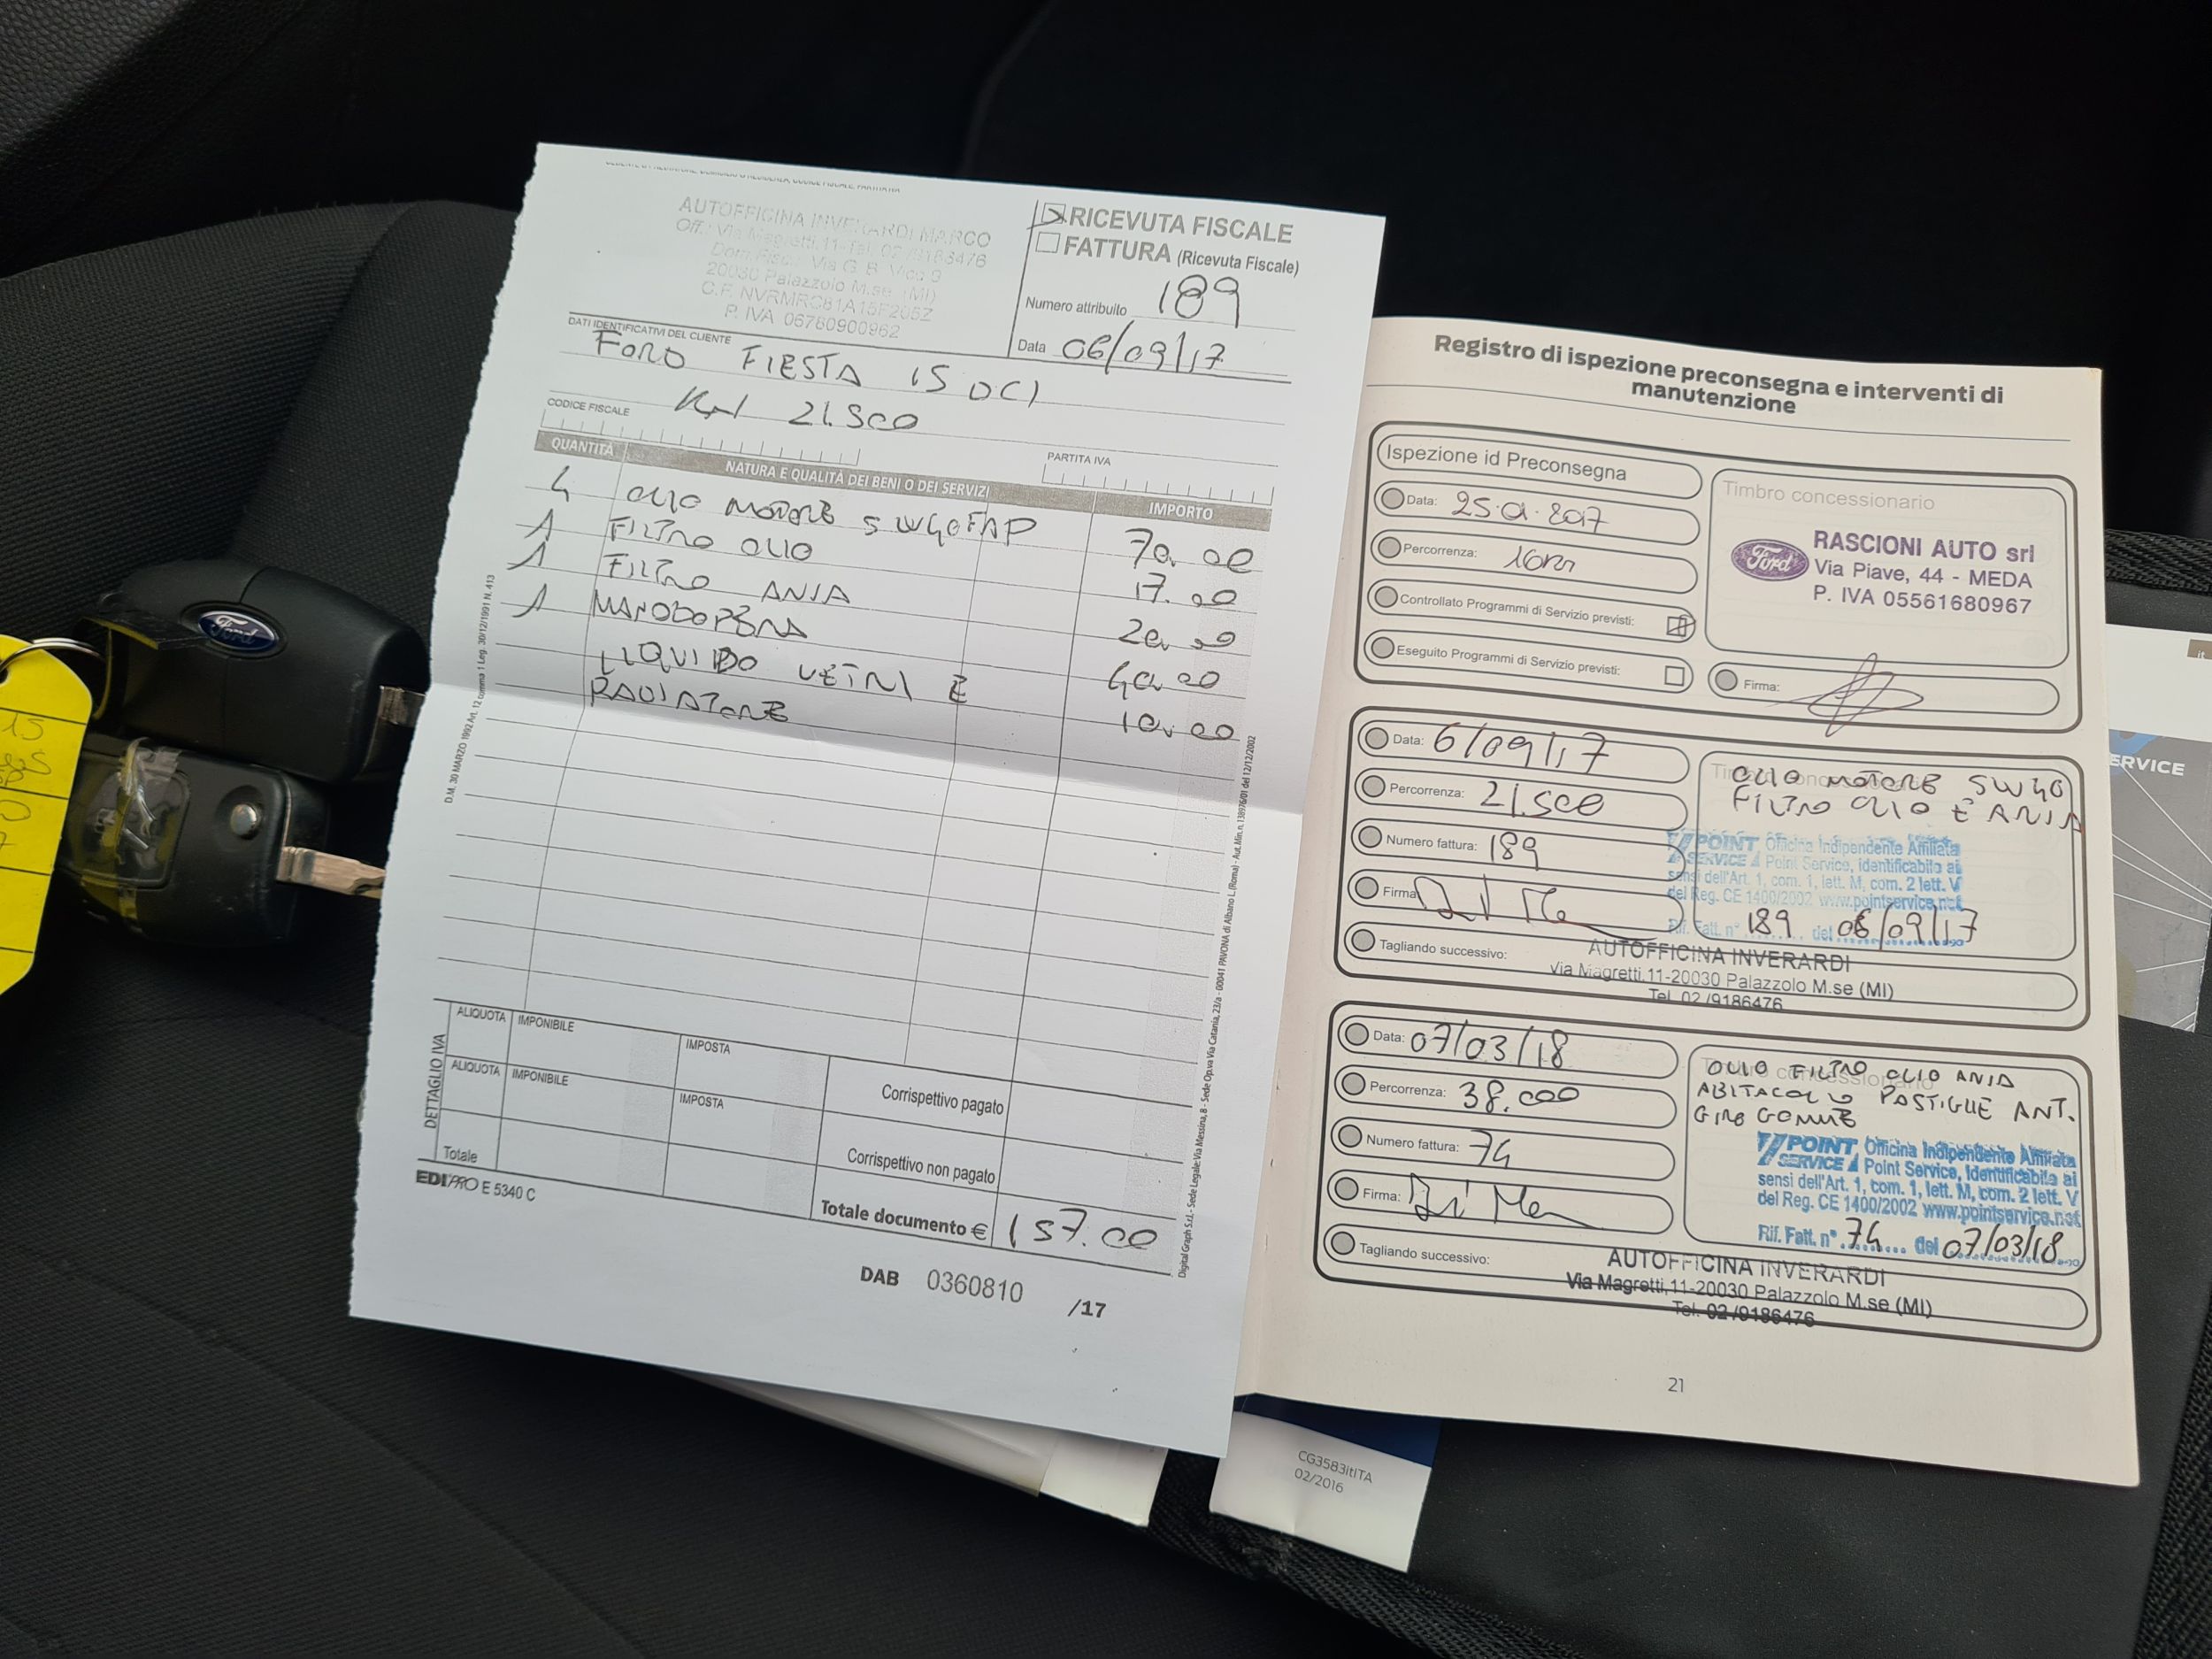 AUTOFFICINA INVERARDI MARCO
Off.: Via Magretti,11-Tel. 02/9186476
Dom.Fisc.: Via G. B. Vico 9
20030 Palazzolo M.se (MI)
C.F. NVRMRC81A15F205Z
P. IVA 06780900962
RICEVUTA FISCALE
FATTURA (Ricevuta Fiscale)
Numero attribuito 189
Data 06/09/17
DATI IDENTIFICATIVI DEL CLIENTE
FORD FIESTA 15 DCI
KM 21.500
CODICE FISCALE
PARTITA IVA
QUANTITÀ NATURA E QUALITÀ DEI BENI O DEI SERVIZI IMPORTO
4 OLIO MOTORE 5W40 FAP 70.00
1 FILTRO OLIO 17.00
1 FILTRO ARIA 20.00
1 MANODOPERA 40.00
LIQUIDO VETRI E
RADIATORE 10.00
D.M. 30 MARZO 1992 Art. 12 comma 1 Leg. 30/12/1991 N. 413
Digital Graph S.r.l.- Sede Legale: Via Messina, 8 - Sede Op.va Via Catania, 23/a - 00041 PAVONA di Albano L. (Roma) - Aut. Min. n. 138976/01 del 12/12/2002
DETTAGLIO IVA
ALIQUOTA IMPONIBILE IMPOSTA
ALIQUOTA IMPONIBILE IMPOSTA
Totale
Corrispettivo pagato
Corrispettivo non pagato
Totale documento € 157.00
EDIPRO E 5340 C
DAB 0360810 /17
Registro di ispezione preconsegna e interventi di
manutenzione
Ispezione id Preconsegna
Data: 25.01.2017
Percorrenza: 10km
Controllato Programmi di Servizio previsti:
Eseguito Programmi di Servizio previsti:
Timbro concessionario
Ford
RASCIONI AUTO srl
Via Piave, 44 - MEDA
P. IVA 05561680967
Firma:
Data: 6/09/17
Percorrenza: 21.500
Numero fattura: 189
Firma:
Tagliando successivo:
Timbro concessionario
OLIO MOTORE 5W40
FILTRO OLIO E ARIA
POINT SERVICE Officina Indipendente Affiliata
Point Service, identificabile ai
sensi dell'Art. 1, com. 1, lett. M, com. 2 lett. V
del Reg. CE 1400/2002 www.pointservice.net
Rif. Fatt. n° 189 del 06/09/17
AUTOFFICINA INVERARDI
Via Magretti,11-20030 Palazzolo M.se (MI)
Tel. 02/9186476
Data: 07/03/18
Percorrenza: 38.000
Numero fattura: 74
Firma:
Tagliando successivo:
Timbro concessionario
OLIO FILTRO OLIO ARIA
ABITACOLO PASTIGLIE ANT.
GIRO GOMME
POINT SERVICE Officina Indipendente Affiliata
Point Service, identificabile ai
sensi dell'Art. 1, com. 1, lett. M, com. 2 lett. V
del Reg. CE 1400/2002 www.pointservice.net
Rif. Fatt. n° 74 del 07/03/18
AUTOFFICINA INVERARDI
Via Magretti,11-20030 Palazzolo M.se (MI)
Tel. 02/9186476
21
CG3583itITA
02/2016
Ford
it
ERVICE
15